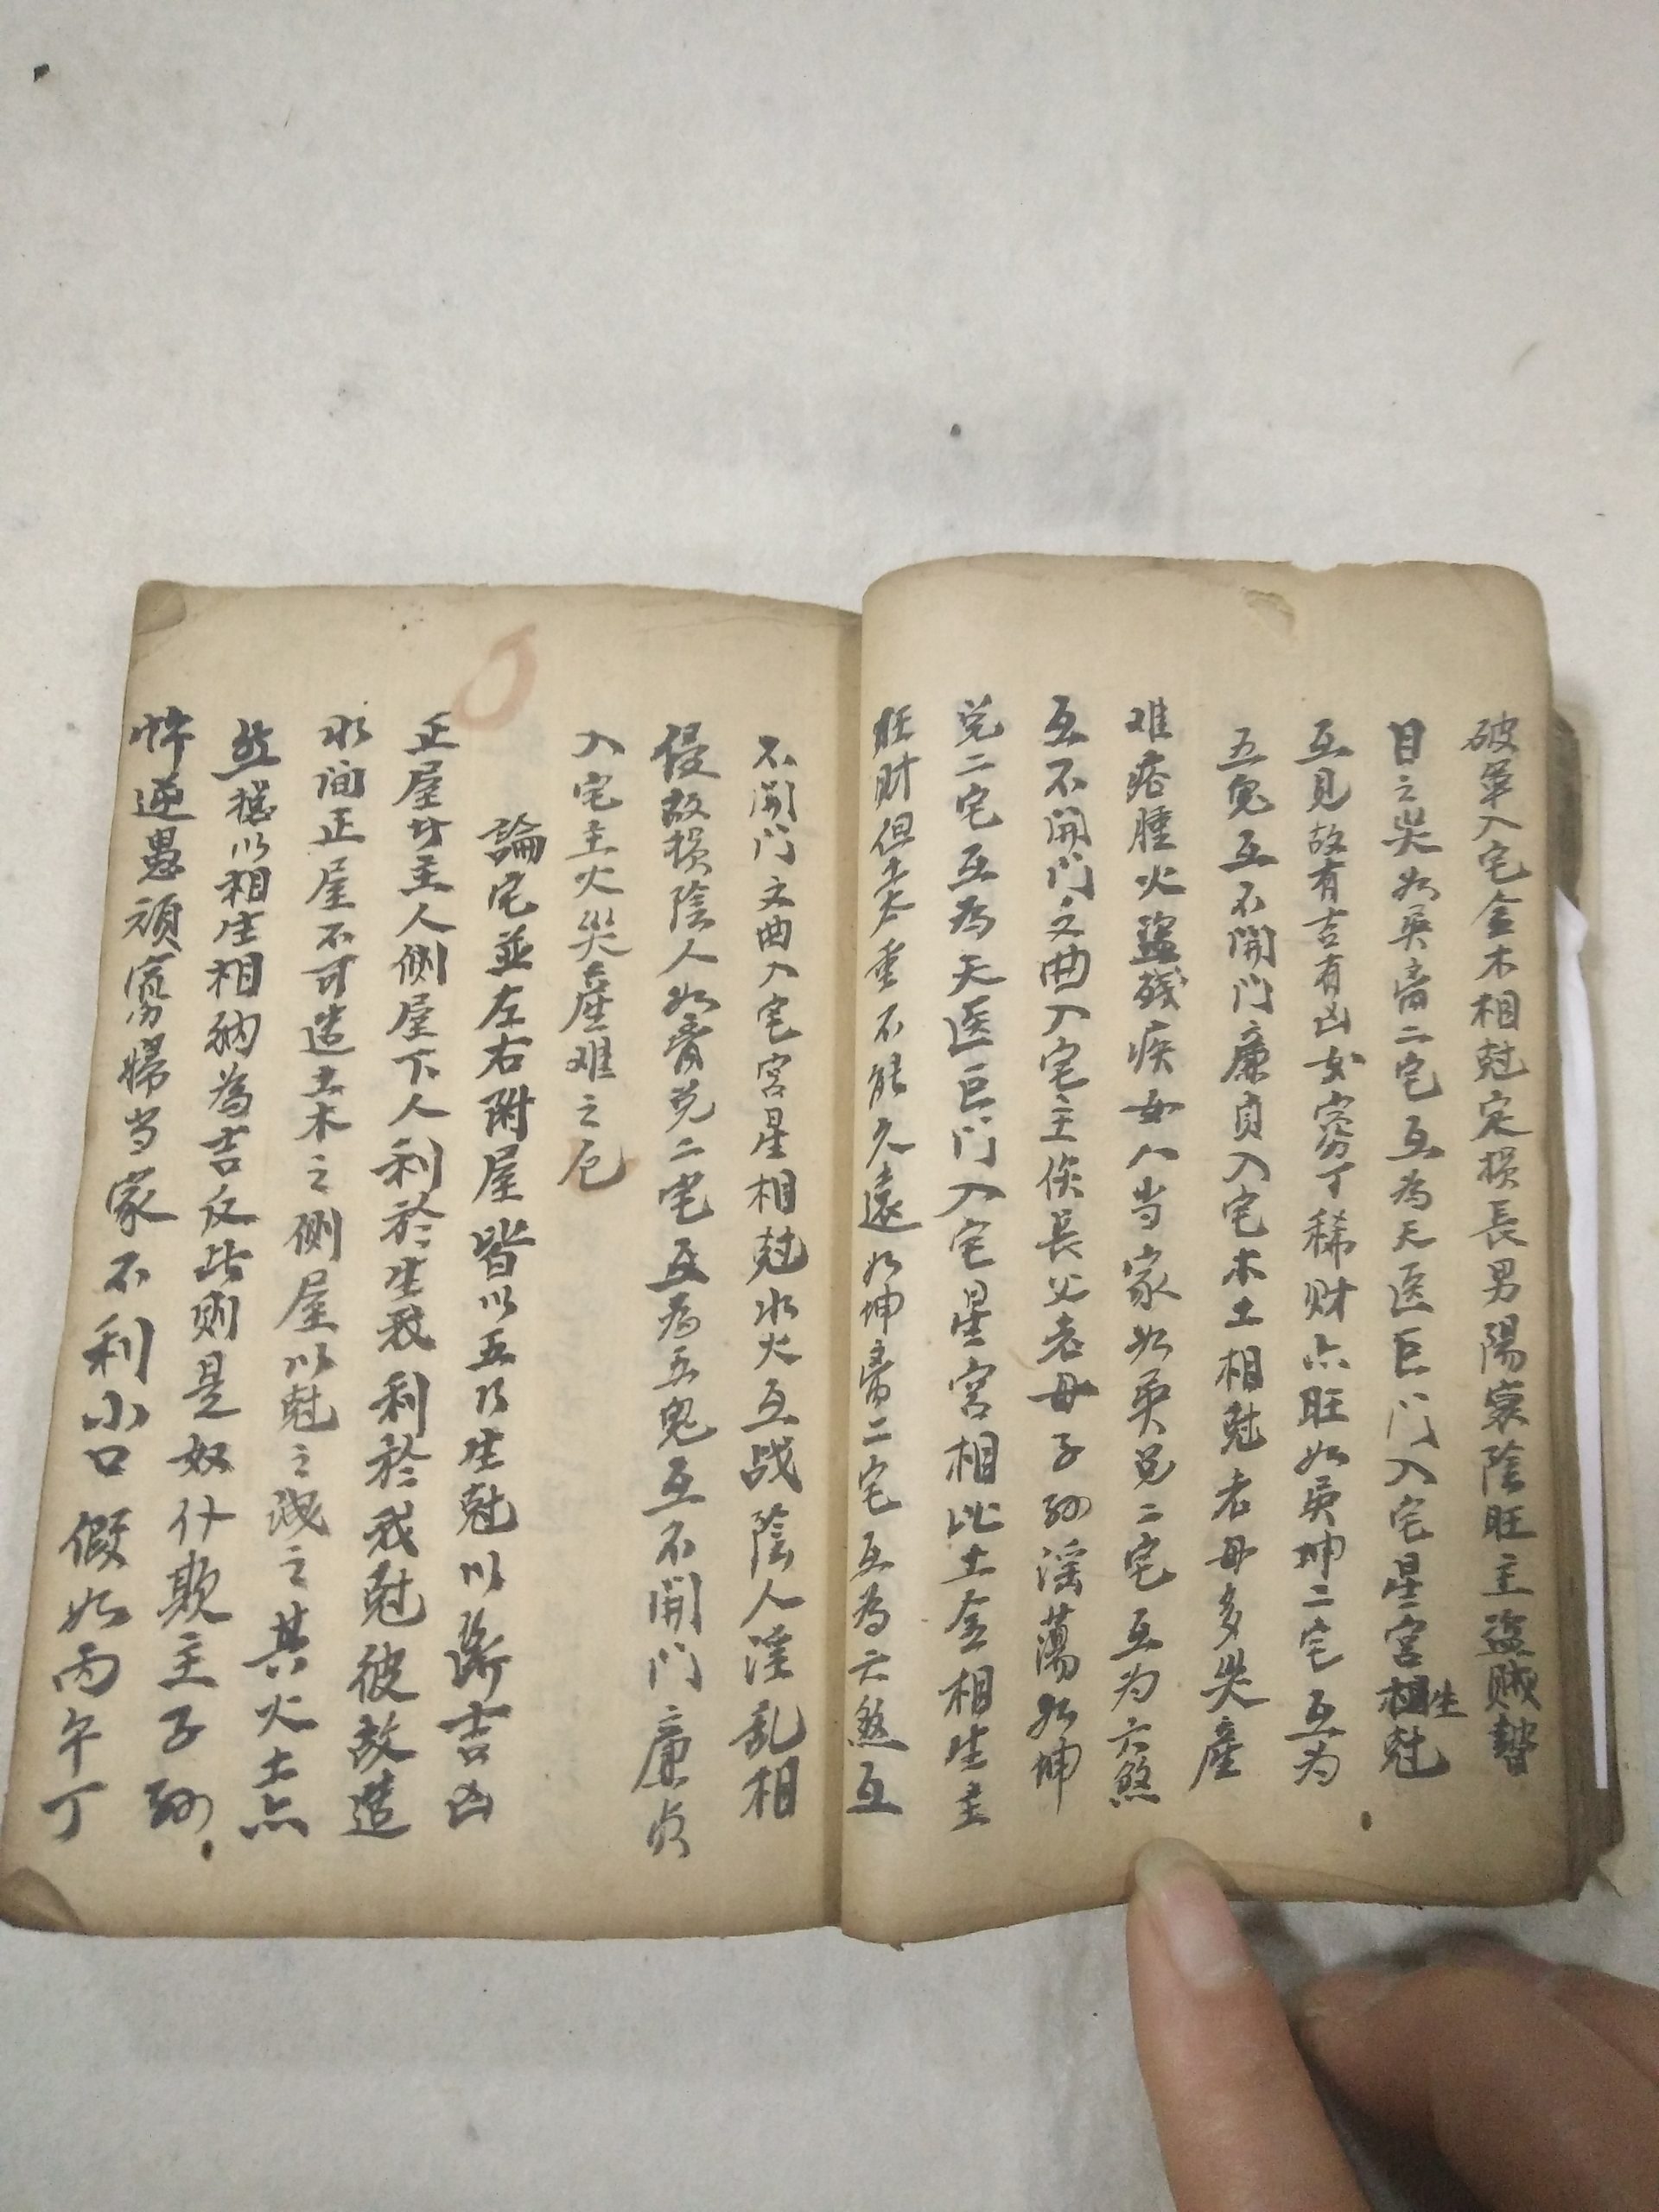 破軍入宅金木相尅定損長男陽衰陰旺主盜賊瞽
目之災如巽離二宅互為天医巨门入宅星宮相生尅
互見故有吉有凶女寡丁稀财亦旺如巽坤二宅互为
五鬼互不開门廉貞入宅木土相尅老母多災產
难瘡腫火盜殘疾女人当家如巽兑二宅互为六煞
互不開门文曲入宅主傷長父老母子孙淫蕩如坤
兑二宅互為天医巨门入宅星宮相比土金相生主
旺财但妻重不能久遠如坤离二宅互為六煞互
不開门文曲入宅宮星相尅水火互战陰人淫乱相
侵故損陰人如离兑二宅互為五鬼互不開门廉贞
入宅主火災產难之厄
論宅並左右附屋皆以五行生尅以断吉凶
正屋廿主人侧屋下人利於生我利於我尅彼故造
水间正屋不可造土木之侧屋以尅之洩之其火土点
然揔以相生相纳為吉反此则是奴仆欺主子孙
忤逆愚頑寡婦当家不利小口假如丙午丁